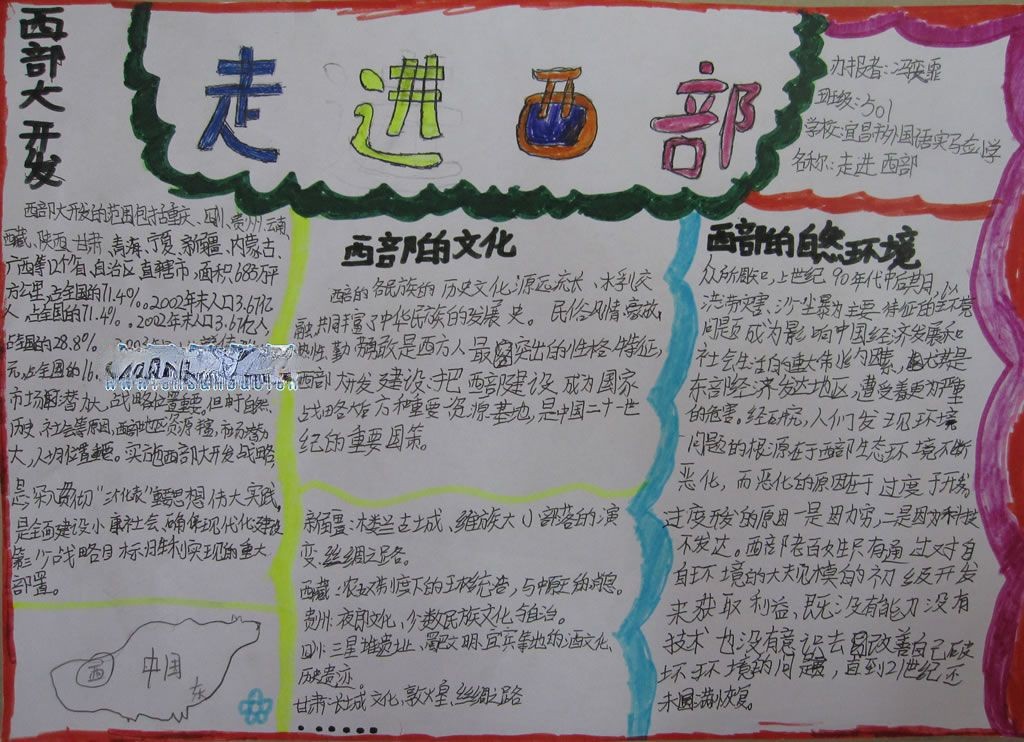 走进西部
办报者:冯
班级:501
学校:宜昌市外国语实马金小学
名称:走进西部
西部大开发
西部大开发的范围包括重庆、四川、贵州、云南、
西藏、陕西、甘肃、青海、宁夏、新疆、内蒙古、
广西等12个省、自治区、直辖市,面积685万平
方公里,占全国的71.4%。2002年末人口3.67亿
人,占全国的71.4%。2002年末人口3.67亿人,
占全国的28.8%
元,占全国的16.
市场潜力大,战略位置重要。但由于自然、
历史、社会等原因,西部地区资源丰富,市场潜力
大,人力位置重要。实施西部大开发战略
是深入贯彻“三个代表”重要思想伟大实践,
是全面建设小康社会,确保现代化建设
第三步战略目标胜利实现的重大
部署。
西
中国
东
西部的文化
西部的各民族的历史文化源远流长、水乳交
融,共同丰富了中华民族的发展史。民俗风情豪放、
热性、勤、勇敢是西方人最突出的性格特征,
西部大开发建设:把西部建设成为国家
战略后方和重要资源基地,是中国二十一世
纪的重要国策。
新疆:楼兰古土城、维族大小部落的演
变.丝绸之路。
西藏:农奴制度下的王权统治,与中原的消息。
贵州:夜郎文化、少数民族文化与自治。
四川:三星堆遗址、蜀文明、宜宾等地的酒文化、
历史遗迹.
甘肃:长城文化、敦火星、丝绸之路
••••••
西部的自然环境
众所周知,上世纪90年代中后期,以
洪涝灾害、沙尘暴为主要特征的生环境
问题成为影响中国经济发展和
社会生活的重大制约因素,尤其是
东部经济发达地区,遭受着更为严重
的危害。经研究,人们发现环境
问题的根源在于西部生态环境不断
恶化,而恶化的原因在于过度开发
过度开发的原因一是因为穷,二是因为科技
不发达。西部老百姓只有通过对自
自环境的大规模的初级开发
来获取利益,既没有能力没有
技术也没有意识去改善自己破
坏环境的问题,直到21世纪还
未圆满恢复。